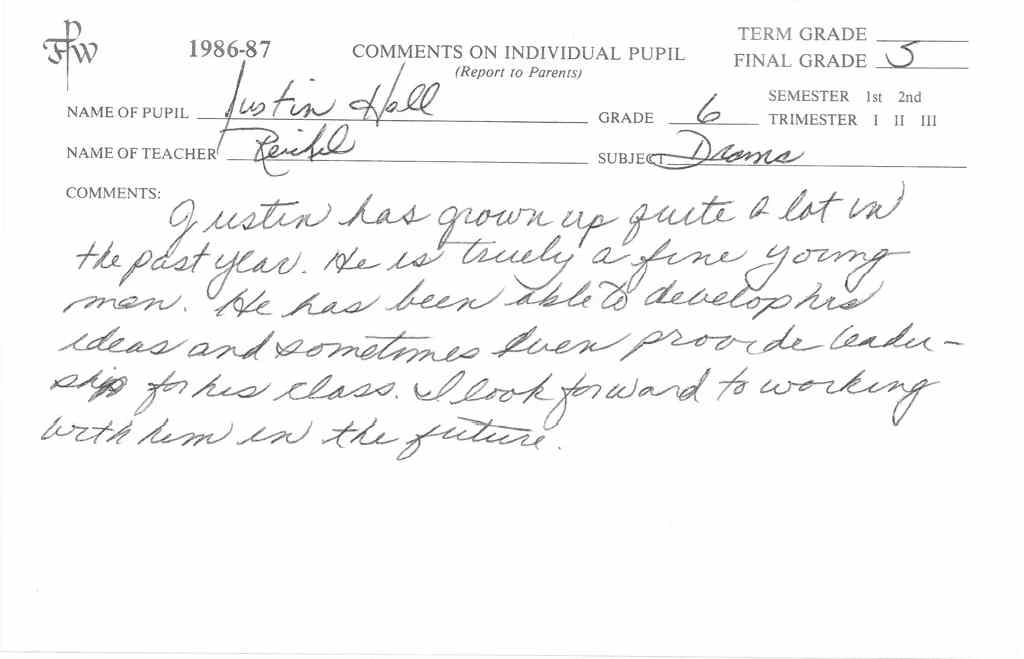 FPW
1986-87
COMMENTS ON INDIVIDUAL PUPIL
(Report to Parents)
TERM GRADE
FINAL GRADE 5
NAME OF PUPIL Justin Hall
GRADE 6
SEMESTER 1st 2nd
TRIMESTER I II III
NAME OF TEACHER
SUBJECT Drama
COMMENTS:
Justin has grown up quite a lot in
the past year. He is truely a fine young
man. He has been able to develop his
ideas and sometimes even provide leader-
ship for his class. I look forward to working
with him in the future.